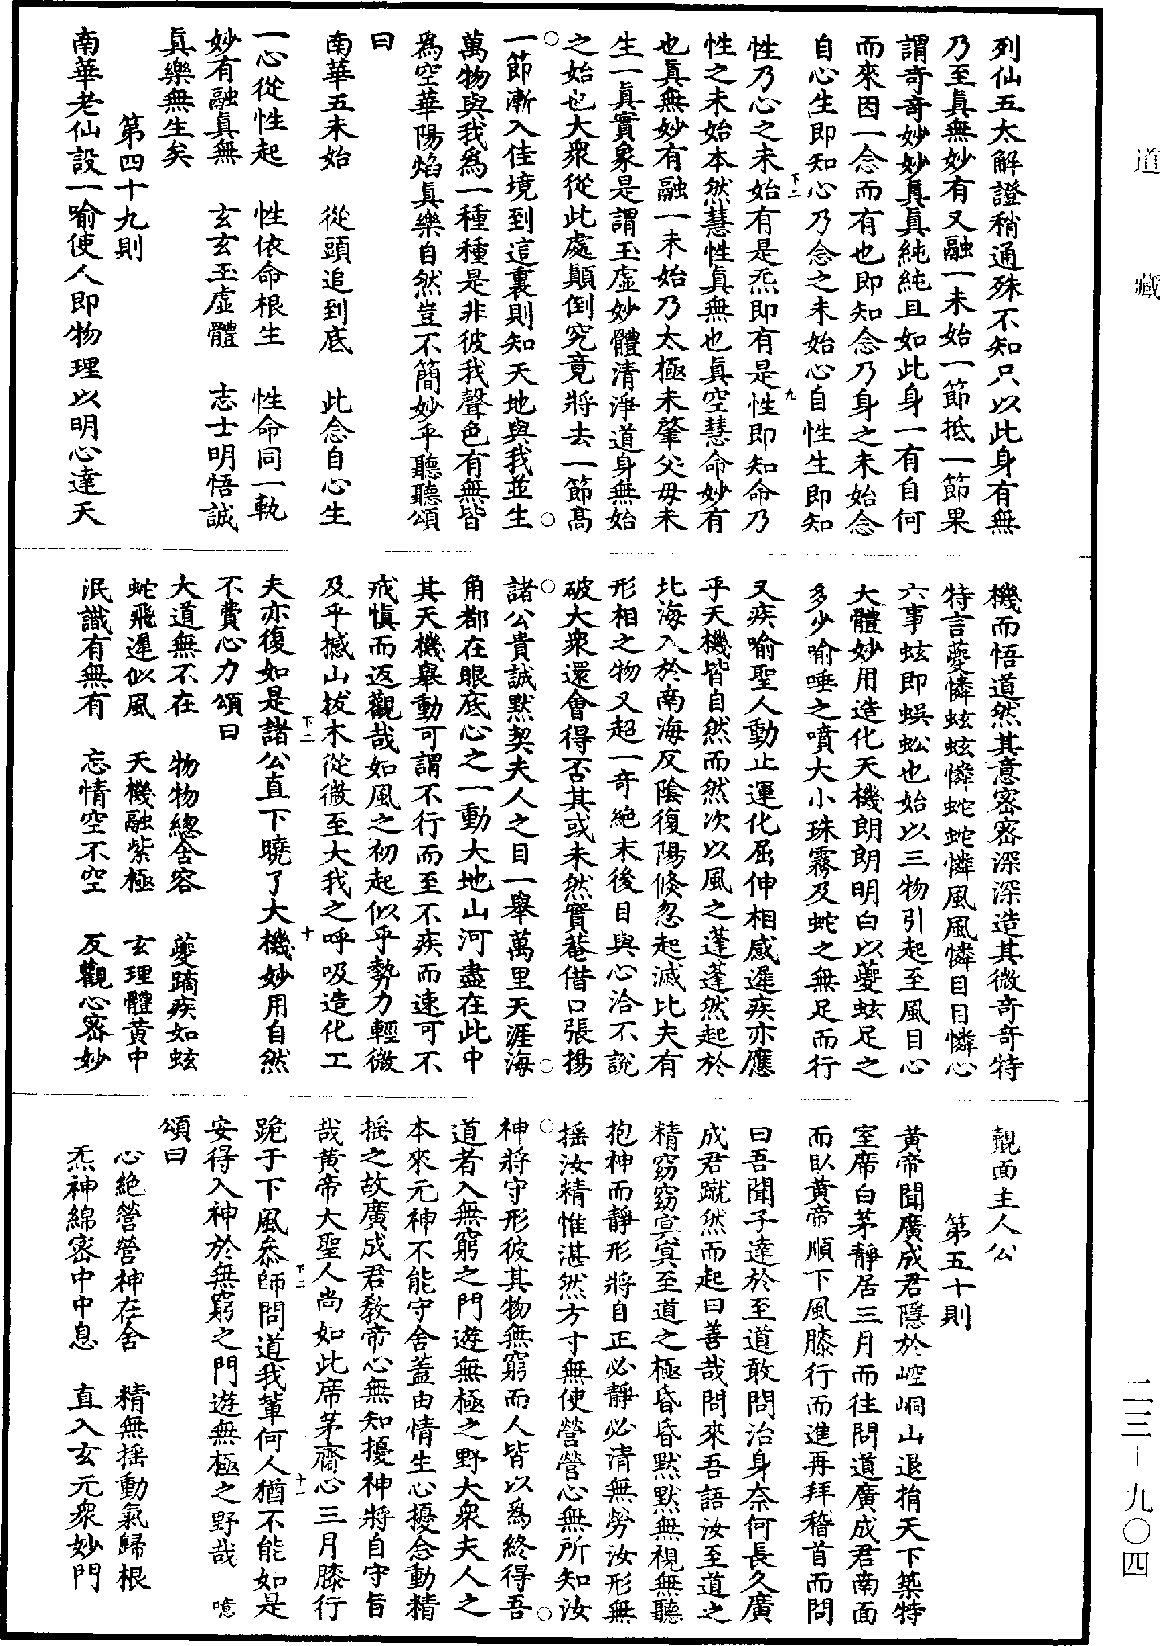 道藏
二三—九〇四
列仙五太解證稍通殊不知只以此身有無
乃至真無妙有又融一未始一節抵一節果
謂奇奇妙妙真真純純且如此身一有自何
而來因一念而有也即知念乃身之未始念
自心生即知心乃念之未始心自性生即知
性乃心之未始有是炁即有是性即知命乃
性之未始本然慧性真無也真空慧命妙有
也真無妙有融一未始乃太極未肇父母未
生一真實象是謂玉虛妙體清淨道身無始
之始也大衆從此處顛倒究竟將去一節高
一節漸入佳境到這裏則知天地與我並生
萬物與我為一種種是非彼我聲色有無皆
為空華陽焰真樂自然豈不簡妙乎聽聽頌
曰
南華五未始 從頭追到底 此念自心生
一心從性起 性依命根生 性命同一軌
妙有融真無 玄玄玉虛體 志士明悟誠
真樂無生矣
第四十九則
南華老仙設一喻使人即物理以明心達天
機而悟道然其意密密深深造其微奇奇特
特言夔憐蚿蚿憐蛇蛇憐風風憐目目憐心
六事蚿即蜈蚣也始以三物引起至風目心
大體妙用造化天機朗朗明白以夔蚿足之
多少喻唾之噴大小珠霧及蛇之無足而行
又疾喻聖人動止運化屈伸相感遲疾亦應
乎天機皆自然而然次以風之蓬蓬然起於
北海入於南海反陰復陽倏忽起滅比夫有
形相之物又超一奇絕末後目與心洽不說
破大衆還會得否其或未然寶菴借口張揚
諸公貴誠默契夫人之目一舉萬里天涯海
角都在眼底心之一動大地山河盡在此中
其天機舉動可謂不行而至不疾而速可不
戒慎而返觀哉如風之初起似乎勢力輕微
及乎撼山拔木從微至大我之呼吸造化工
夫亦復如是諸公直下曉了大機妙用自然
不費心力頌曰
大道無不在 物物總含容 夔蹢疾如蚿
蛇飛遲似風 天機融紫極 玄理體黃中
泯識有無有 忘情空不空 反觀心密妙
覿面主人公
第五十則
黃帝聞廣成君隱於崆峒山退捐天下築特
室席白茅靜居三月而往問道廣成君南面
而臥黃帝順下風膝行而進再拜稽首而問
曰吾聞子達於至道敢問治身奈何長久廣
成君蹴然而起曰善哉問來吾語汝至道之
精窈窈冥冥至道之極昏昏默默無視無聽
抱神而靜形將自正必靜必清無勞汝形無
搖汝精惟湛然方寸無使營營心無所知汝
神將守形彼其物無窮而人皆以為終得吾
道者入無窮之門遊無極之野大衆夫人之
本來元神不能守舍蓋由情生心擾念動精
搖之故廣成君教帝心無知擾神將自守旨
哉黃帝大聖人尚如此席茅齋心三月膝行
跪于下風叅師問道我輩何人猶不能如是
安得入神於無窮之門遊無極之野哉 噫
頌曰
心絕營營神在舍 精無搖動氣歸根
炁神綿密中中息 直入玄元衆妙門
下二 九
下二 十
下二 十一